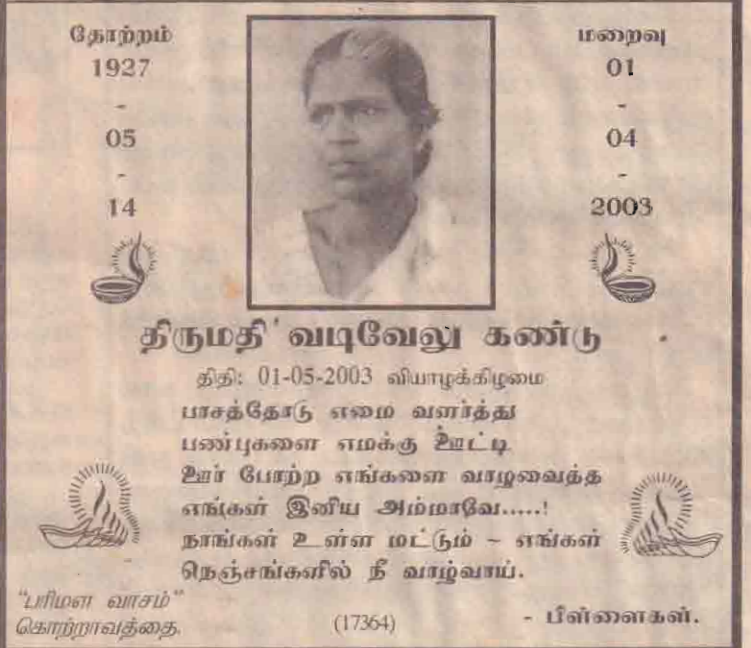 தோற்றம்
1927
-
05
-
14
மறைவு
01
-
04
-
2003
திருமதி வடிவேலு கண்டு
திதி: 01-05-2003 வியாழக்கிழமை
பாசத்தோடு எமை வளர்த்து
பண்புகளை எமக்கு ஊட்டி
ஊர் போற்ற எங்களை வாழவைத்த
எங்கள் இனிய அம்மாவே.....!
நாங்கள் உள்ள மட்டும் - எங்கள்
நெஞ்சங்களில் நீ வாழ்வாய்.
"பரிமள வாசம்"
கொற்றாவத்தை.
(17364)
- பிள்ளைகள்.